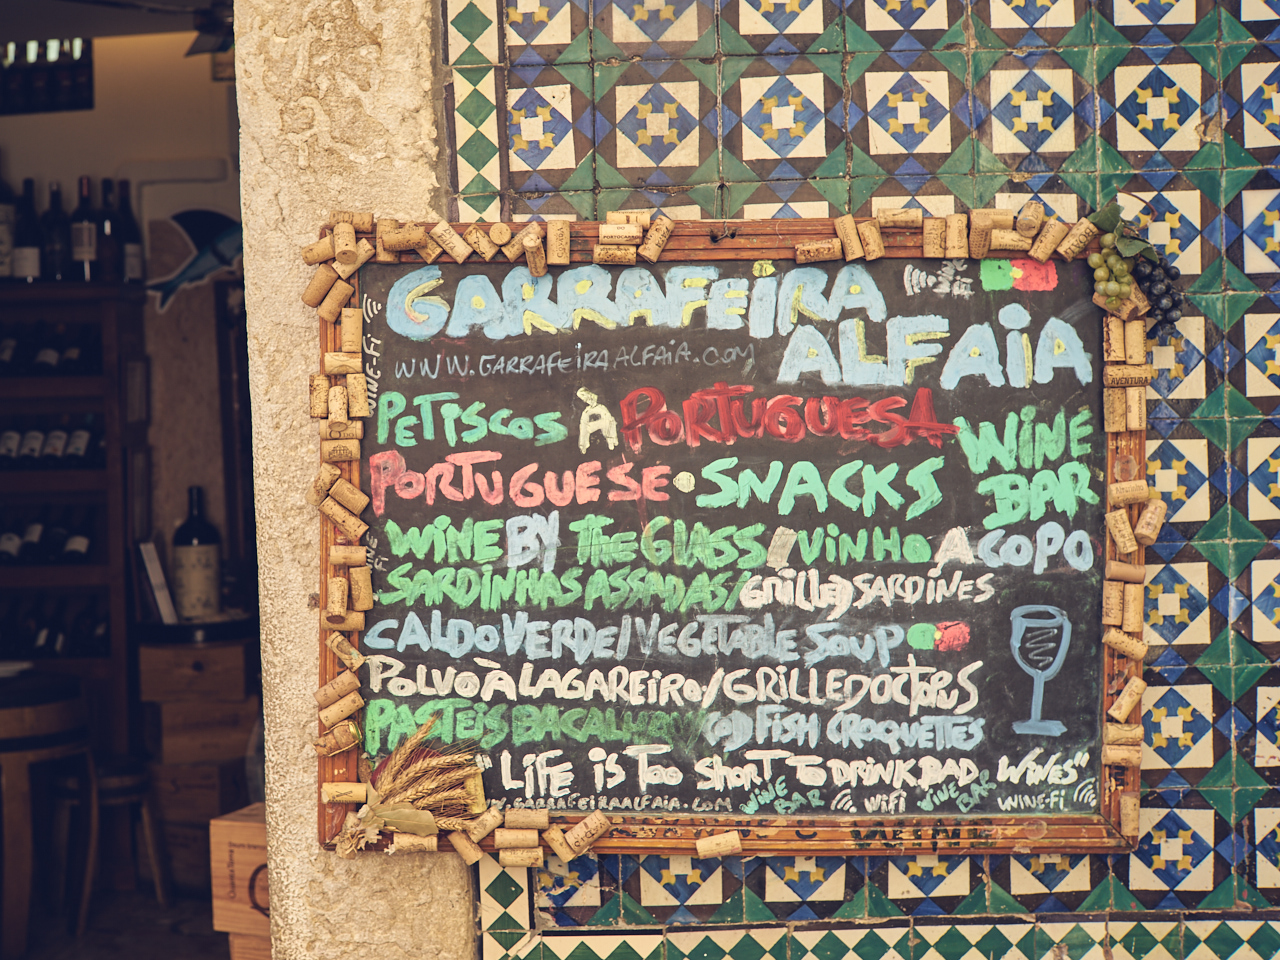 GARRAFEIRA
ALFAIA
WWW.GARRAFEIRAALFAIA.COM
WINE-Fi
PETISCOS À PORTUGUESA
WINE
BAR
PORTUGUESE • SNACKS
WINE BY THE GLASS / VINHO A COPO
SARDINHAS ASSADAS / GRILLED SARDINES
CALDO VERDE / VEGETABLE SOUP
POLVO À LAGAREIRO / GRILLED OCTOPUS
PASTEIS BACALHAU COD FISH CROQUETTES
"LIFE iS TOO SHORT TO DRINK BAD WINES"
W.GARRAFEIRAALFAIA.COM WINE BAR WiFi WINE BAR WINE-Fi
AVENTURA